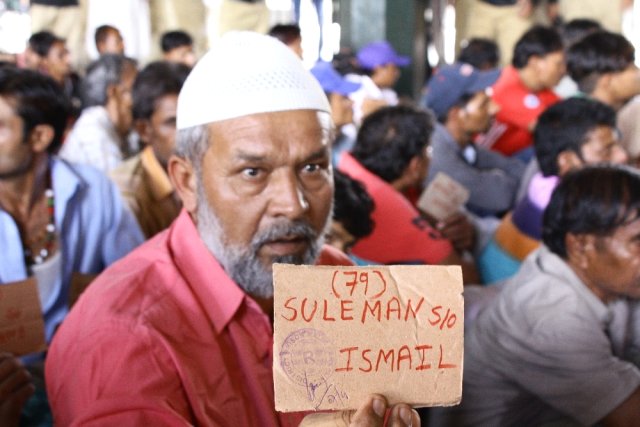 (79)
SULEMAN S/O
ISMAIL
R